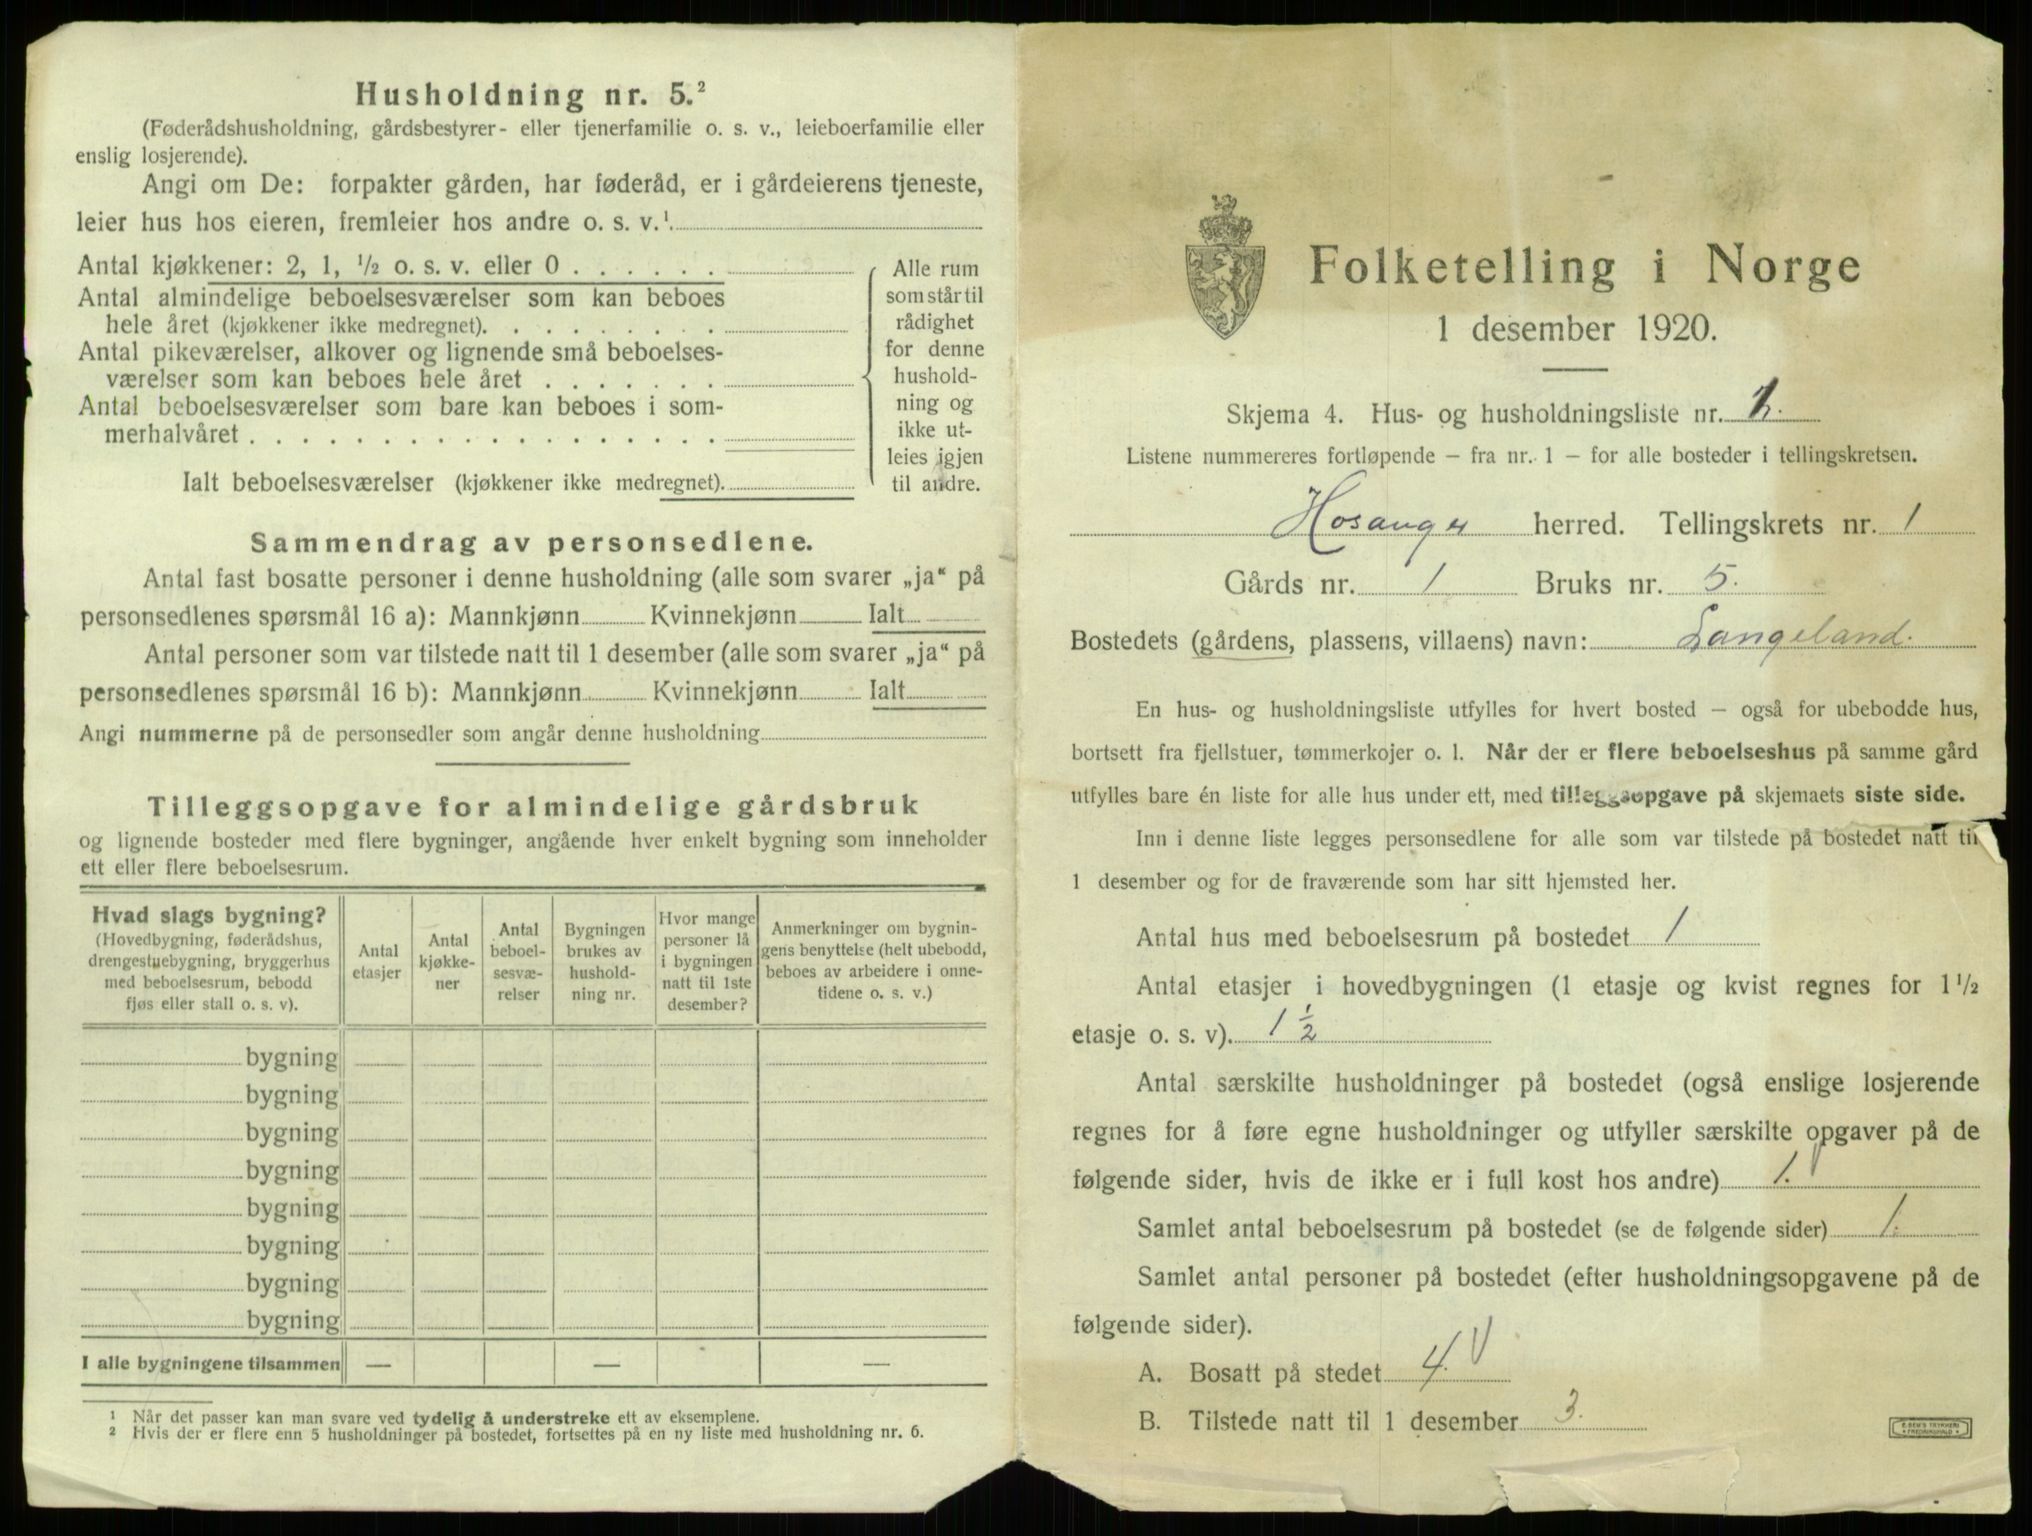 Husholdning nr. 5.²
(Føderådshusholdning, gårdsbestyrer- eller tjenerfamilie o. s. v., leieboerfamilie eller
enslig losjerende).
Angi om De: forpakter gården, har føderåd, er i gårdeierens tjeneste,
leier hus hos eieren, fremleier hos andre o. s. v.¹
Antal kjøkkener: 2, 1, ½ o. s. v. eller 0
Antal almindelige beboelsesværelser som kan beboes
hele året (kjøkkener ikke medregnet).
Antal pikeværelser, alkover og lignende små beboelses-
værelser som kan beboes hele året
Antal beboelsesværelser som bare kan beboes i som-
merhalvåret
Ialt beboelsesværelser (kjøkkener ikke medregnet).
Alle rum
som står til
rådighet
for denne
hushold-
ning og
ikke ut-
leies igjen
til andre.
Sammendrag av personsedlene.
Antal fast bosatte personer i denne husholdning (alle som svarer „ja“ på
personsedlenes spørsmål 16 a): Mannkjønn Kvinnekjønn Ialt
Antal personer som var tilstede natt til 1 desember (alle som svarer „ja“ på
personsedlenes spørsmål 16 b): Mannkjønn Kvinnekjønn Ialt
Angi nummerne på de personsedler som angår denne husholdning
Tilleggsopgave for almindelige gårdsbruk
og lignende bosteder med flere bygninger, angående hver enkelt bygning som inneholder
ett eller flere beboelsesrum.
Hvad slags bygning?
(Hovedbygning, føderådshus,
drengestuebygning, bryggerhus
med beboelsesrum, bebodd
fjøs eller stall o. s. v).
Antal
etasjer
Antal
kjøkke-
ner
Antal
beboel-
sesvæ-
relser
Bygningen
brukes av
hushold-
ning nr.
Hvor mange
personer lå
i bygningen
natt til 1ste
desember?
Anmerkninger om bygnin-
gens benyttelse (helt ubebodd,
beboes av arbeidere i onne-
tidene o. s. v.)
bygning
bygning
bygning
bygning
bygning
bygning
bygning
bygning
I alle bygningene tilsammen — — —
¹ Når det passer kan man svare ved tydelig å understreke ett av eksemplene.
² Hvis der er flere enn 5 husholdninger på bostedet, fortsettes på en ny liste med husholdning nr. 6.
Folketelling i Norge
1 desember 1920.
Skjema 4. Hus- og husholdningsliste nr.
Listene nummereres fortløpende – fra nr. 1 – for alle bosteder i tellingskretsen.
Hosanger herred. Tellingskrets nr. 1
Gårds nr. 1 Bruks nr. 5.
Bostedets (gårdens, plassens, villaens) navn: Langeland.
En hus- og husholdningsliste utfylles for hvert bosted – også for ubebodde hus,
bortsett fra fjellstuer, tømmerkojer o. l. Når der er flere beboelseshus på samme gård
utfylles bare én liste for alle hus under ett, med tilleggsopgave på skjemaets siste side.
Inn i denne liste legges personsedlene for alle som var tilstede på bostedet natt til
1 desember og for de fraværende som har sitt hjemsted her.
Antal hus med beboelsesrum på bostedet 1
Antal etasjer i hovedbygningen (1 etasje og kvist regnes for 1 ½
etasje o. s. v). 1 ½
Antal særskilte husholdninger på bostedet (også enslige losjerende
regnes for å føre egne husholdninger og utfyller særskilte opgaver på de
følgende sider, hvis de ikke er i full kost hos andre) 1.
Samlet antal beboelsesrum på bostedet (se de følgende sider) 1.
Samlet antal personer på bostedet (efter husholdningsopgavene på de
følgende sider).
A. Bosatt på stedet 4.
B. Tilstede natt til 1 desember 3.